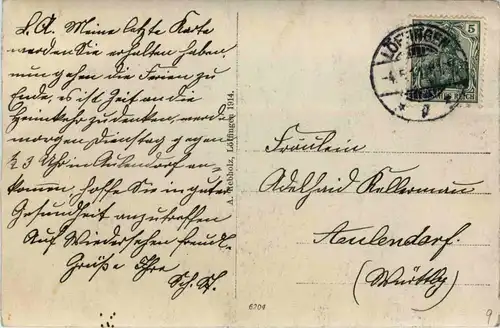 L. A. Meine letzte Karte
werden Sie erhalten haben,
nun gehen die Ferien zu
Ende, es ist Zeit an die
Heimkehr zu denken, werde
morgen Dienstag gegen
½ 3 Uhr in Aulendorf an-
kommen, hoffe Sie in guter
Gesundheit anzutreffen
Auf Wiedersehen freundl.
Grüße Ihre
Sch. St.
A. Rebholz, Löffingen 1914.
6204
LÖFFINGEN
5
REICH
Fräulein
Adelhaid Kellermau
Aulendorf.
(Württbg)